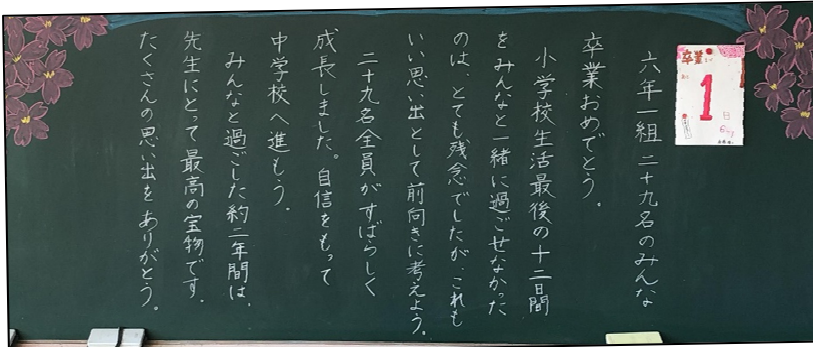 六年一組 二十九名のみんな
卒業おめでとう。
小学校生活最後の十二日間
をみんなと一緒に過ごせなかった
のは、とても残念でしたが、これも
いい思い出として前向きに考えよう。
二十九名全員がすばらしく
成長しました。自信をもって
中学校へ進もう。
みんなと過ごした約二年間は、
先生にとって最高の宝物です。
たくさんの思い出をありがとう。
卒業まで
1
日